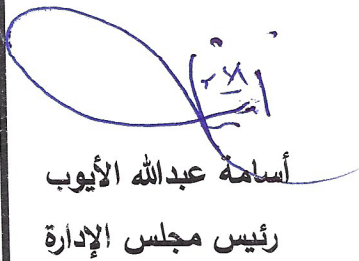 أسامة عبدالله الأيوب
رئيس مجلس الإدارة